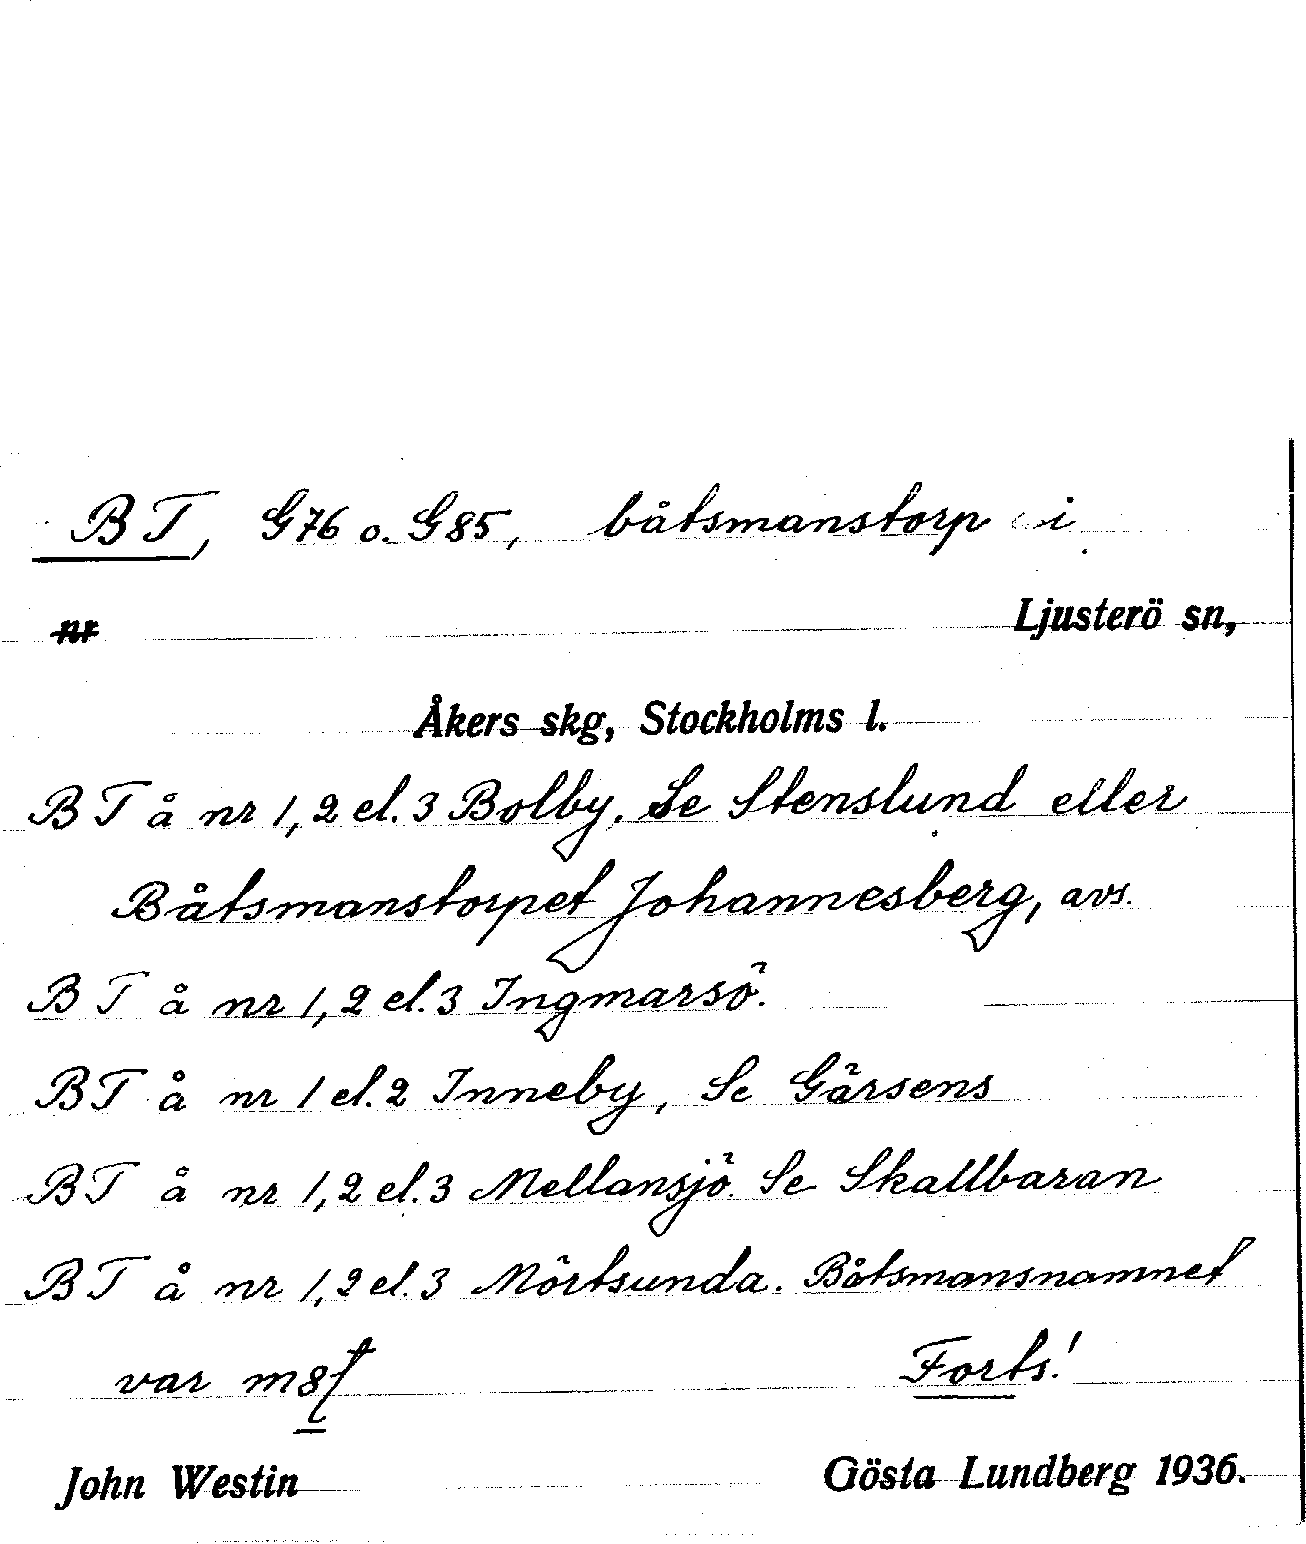 BT, G76 o. G85, båtsmanstorp i
nr Ljusterö sn,
Åkers skg, Stockholms l.
BT å nr 1,2 el. 3 Bolby. Se Stenslund eller
Båtsmanstorpet Johannesberg, avs.
BT å nr 1,2 el. 3 Ingmarsö.
BT å nr 1 el. 2 Inneby, Se Gärsens
BT å nr 1,2 el. 3 Mellansjö. Se Skallbaran
BT å nr 1,2 el. 3 Mörtsunda. Båtsmansnamnet
var Forts!
John Westin Gösta Lundberg 1936.